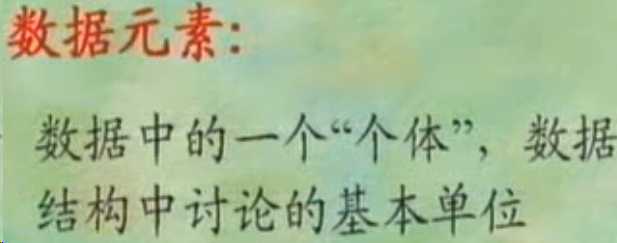 数据元素:
数据中的一个“个体”, 数据
结构中讨论的基本单位